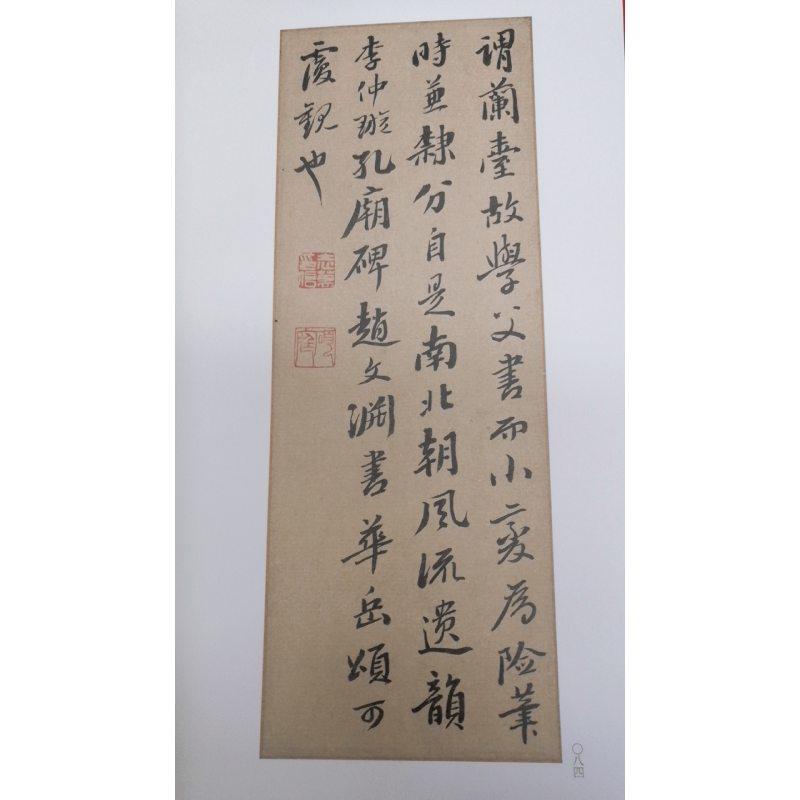 謂蘭臺故學父書而小變為險筆
時兼隸分自是南北朝風流遺韻
李仲璇孔廟碑趙文淵書華岳頌可
覆觀也
〇八四